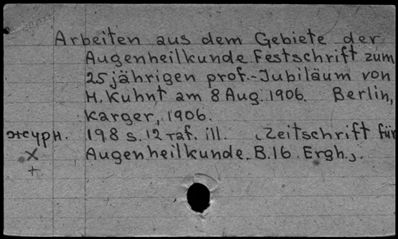 Arbeiten aus dem Gebiete der
Augenheilkunde. Festschrift zum
25jährigen prof.-Jubiläum von
H. Kuhnt am 8 Aug. 1906. Berlin,
Karger, 1906.
журн. 198 s. 12 taf. ill. (Zeitschrift für
Augenheilkunde. B.16. Ergh.).